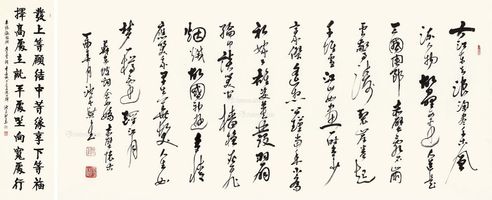 大江東去浪淘盡千古風
流人物故壘西邊人道是
三國周郎赤壁亂石崩
雲驚濤裂岸捲起
千堆雪江山如畫一時多少
豪傑遙想公瑾當年小喬
初嫁了雄姿英發羽扇
綸巾談笑間檣櫓灰飛
煙滅故國神遊多情
應笑我早生華髮人生如
夢一樽還酹江月
赤壁懷古
丁酉年月
發上等願結中等緣享下等福
擇高處立就平處坐向寬處行